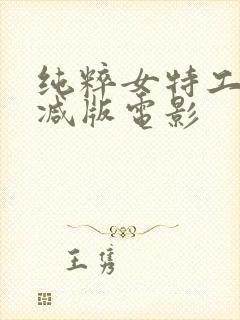 纯粹女特工
减版电影
王隽